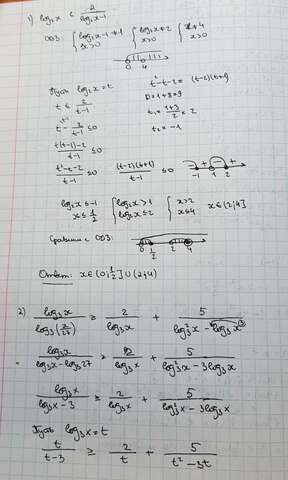 1) log₂x ≤ 2/(log₂x-1)
ОДЗ: { log₂x-1≠0 x>0 { log₂x≠2 x>0 { x≠4 x>0
0 4
Пусть log₂x=t
t ≤ 2/(t-1)
t²-t-2= (t-2)(t+1)
D=1+8=9
t - 2/(t-1) ≤0
t₁= (1+3)/2 = 2
t₂= -1
(t(t-1)-2)/(t-1) ≤0
(t²-t-2)/(t-1) ≤0 ((t-2)(t+1))/(t-1) ≤0 - + - +
-1 1 2
log₂x ≤-1 x≤ 1/2 { log₂x>1 log₂x≤2 { x>2 x≤4 x∈(2;4]
Сравним с ОДЗ:
0 1/2 2 4
Ответ: x∈(0;1/2]∪(2;4)
2) log₃x/log₃(x/27) ≥ 2/log₃x + 5/(log₃²x - log₃x³)
log₃x/(log₃x-log₃27) ≥ 2/log₃x + 5/(log₃²x - 3log₃x)
log₃x/(log₃x-3) ≥ 2/log₃x + 5/(log₃²x - 3log₃x)
Пусть log₃x=t
t/(t-3) ≥ 2/t + 5/(t²-3t)